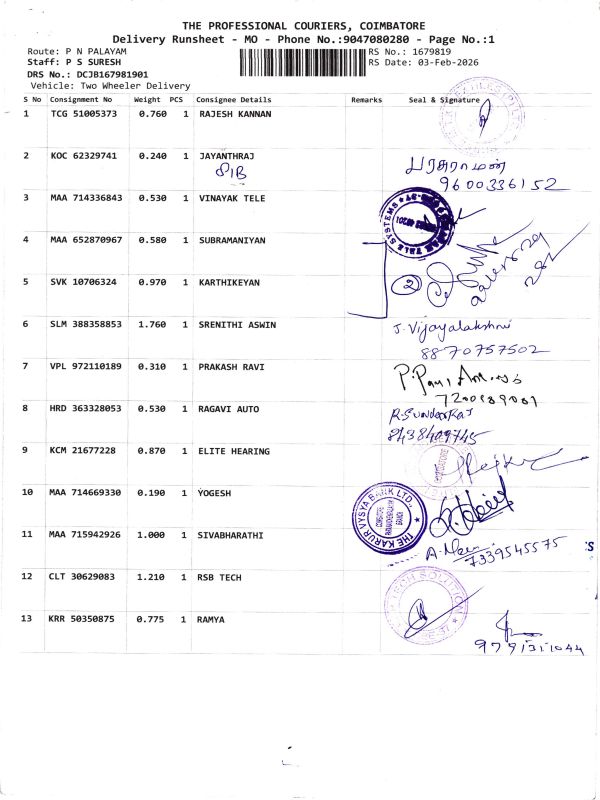 THE PROFESSIONAL COURIERS, COIMBATORE
Delivery Runsheet - MO - Phone No.:9047080280 - Page No.:1
Route: P N PALAYAM
RS No.: 1679819
Staff: P S SURESH
RS Date: 03-Feb-2026
DRS No.: DCJB167981901
Vehicle: Two Wheeler Delivery
S No Consignment No Weight PCS Consignee Details Remarks Seal & Signature
1 TCG 51005373 0.760 1 RAJESH KANNAN
2 KOC 62329741 0.240 1 JAYANTHRAJ
பரசுராமன்
9600336152
3 MAA 714336843 0.530 1 VINAYAK TELE
TELE SYSTEMS
4 MAA 652870967 0.580 1 SUBRAMANIYAN
5 SVK 10706324 0.970 1 KARTHIKEYAN
2
6 SLM 388358853 1.760 1 SRENITHI ASWIN
J. Vijayalakshmi
8870757502
7 VPL 972110189 0.310 1 PRAKASH RAVI
8 HRD 363328053 0.530 1 RAGAVI AUTO
R. Sundarraj
8438409745
9 KCM 21677228 0.870 1 ELITE HEARING
10 MAA 714669330 0.190 1 YOGESH
THE KARUR VYSYA BANK LTD.,
11 MAA 715942926 1.000 1 SIVABHARATHI
7339545575
12 CLT 30629083 1.210 1 RSB TECH
TECH SOLUTION
13 KRR 50350875 0.775 1 RAMYA
9791311044